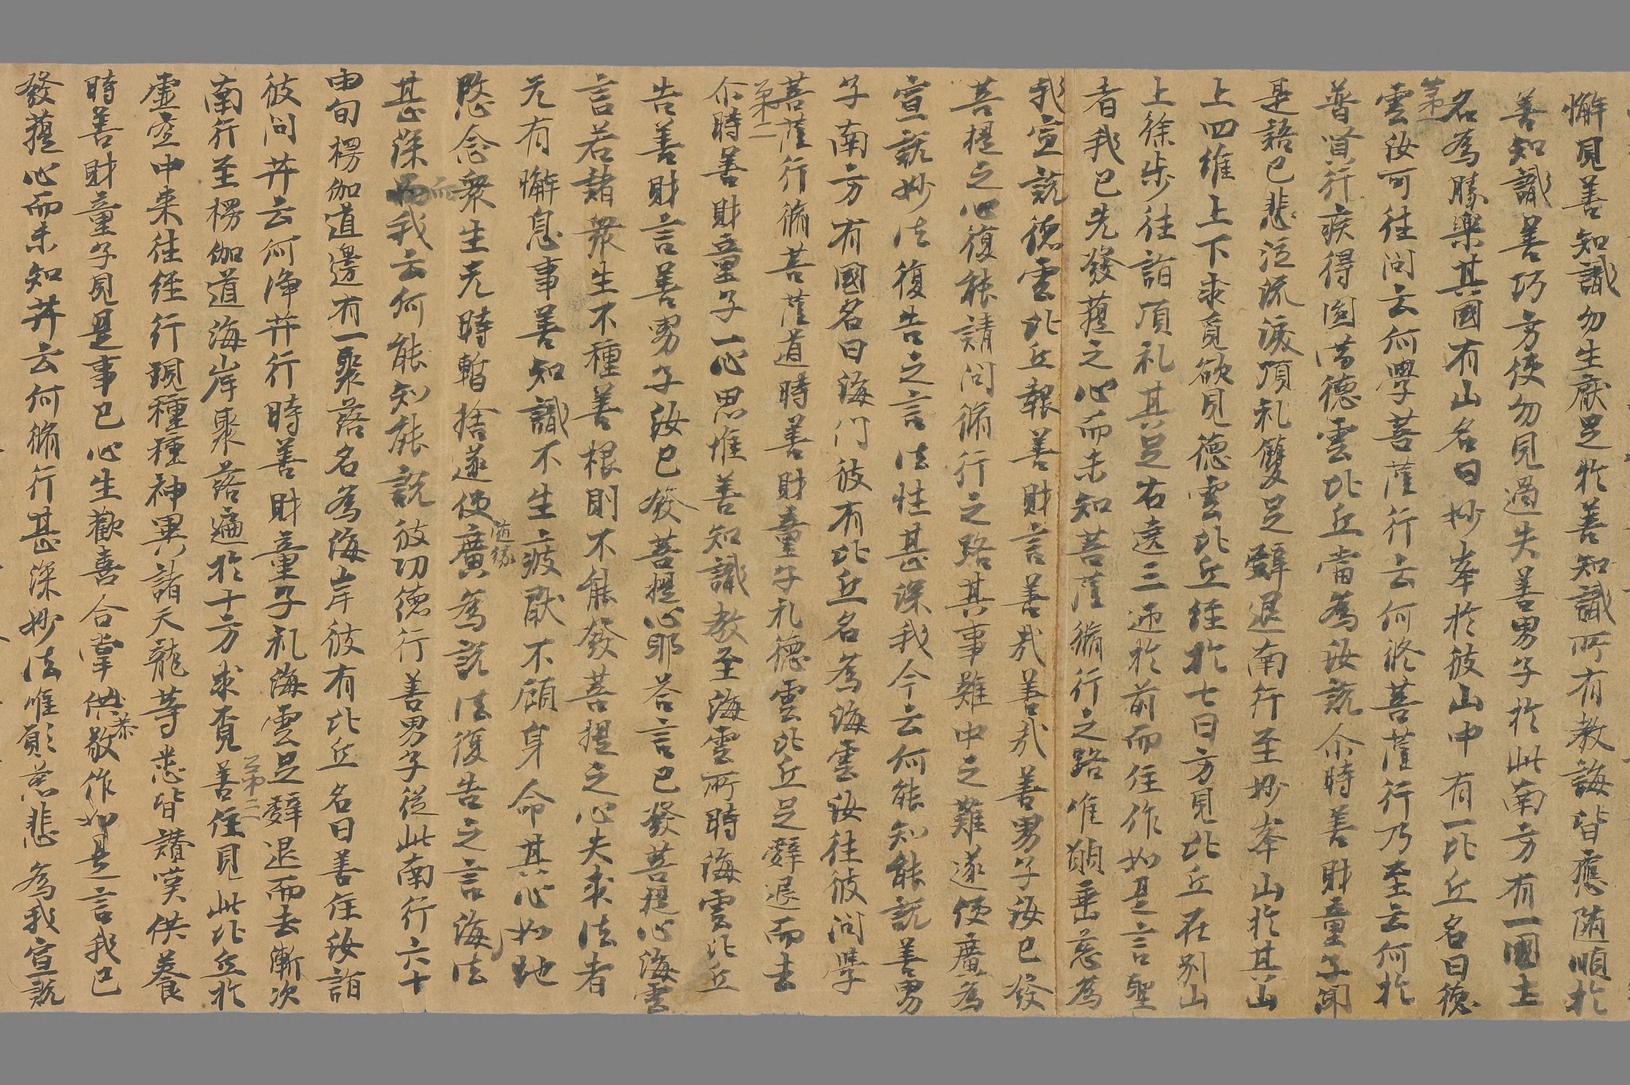 懈見善知識勿生猒足於善知識所有教誨皆應隨順於
善知識善巧方便勿見過失善男子於此南方有一國土
第一
名為勝樂其國有山名曰妙峯於彼山中有一比丘名曰德
雲汝可往問云何學菩薩行云何修菩薩行乃至云何於
普賢行疾得圓滿德雲比丘當為汝說尒時善財童子聞
是語已悲泣流淚頂礼雙足辭退南行至妙峯山於其山
上四維上下求覓欲見德雲比丘経於七日方見比丘在別山
上徐步往詣頂礼其足右遶三迊於前而住作如是言聖
者我已先發菩提之心而未知菩薩脩行之路惟願垂慈為
我宣說德雲比丘報善財言善哉善哉善男子汝已發
菩提之心復能請問脩行之路其事難中之難遂便廣為
宣說妙法復告之言法性甚深我今云何能知能說善男
子南方有國名曰海門彼有比丘名為海雲汝往彼問學
菩薩行脩菩薩道時善財童子礼德雲比丘足辭退而去
第二
尒時善財童子一心思惟善知識教至海雲所時海雲比丘
告善財言善男子汝已發菩提心耶荅言已發菩提心海雲
言若諸衆生不種善根則不能發菩提之心夫求法者
无有懈息事善知識不生疲猒不顧身命其心如地
愍念衆生无時暫捨遂便隨緣廣為說法復告之言海法
甚深而我云何能知能說彼功德行善男子從此南行六十
由旬楞伽道邊有一聚落名為海岸彼有比丘名曰善住汝詣
彼問菩薩云何淨菩薩行時善財童子礼海雲足辭退而去漸次
第三
南行至楞伽道海岸聚落遍於十方求覓善住見此比丘於
虛空中来往経行現種種神異諸天龍等悉皆讚嘆供養
時善財童子見是事已心生歡喜合掌恭敬作如是言我已
發菩提心而未知菩薩云何脩行甚深妙法惟願慈悲為我宣說